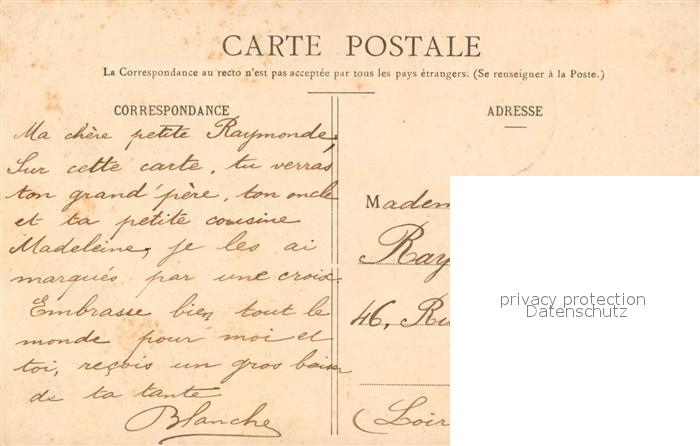 CARTE POSTALE
La Correspondance au recto n'est pas acceptée par tous les pays étrangers. (Se renseigner à la Poste.)
CORRESPONDANCE
Ma chère petite Raymonde,
Sur cette carte, tu verras
ton grand'père, ton oncle
et ta petite cousine
Madeleine, je les ai
marqués par une croix.
Embrasse bien tout le
monde pour moi et
toi, reçois un gros baiser
de ta tante
Blanche
ADRESSE
Madem
Ray
46, Ru
(Loir
privacy protection
Datenschutz